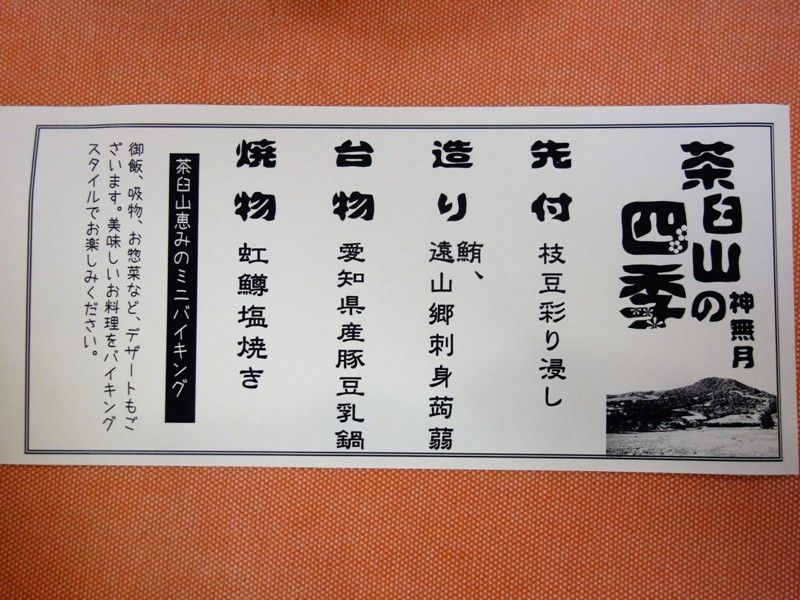 茶臼山の
四季
神無月
先付
枝豆彩り浸し
造り
鮪、
遠山郷刺身蒟蒻
台物
愛知県産豚豆乳鍋
焼物
虹鱒塩焼き
茶臼山恵みのミニバイキング
御飯、吸物、お惣菜など、デザートもご
ざいます。美味しいお料理をバイキング
スタイルでお楽しみください。